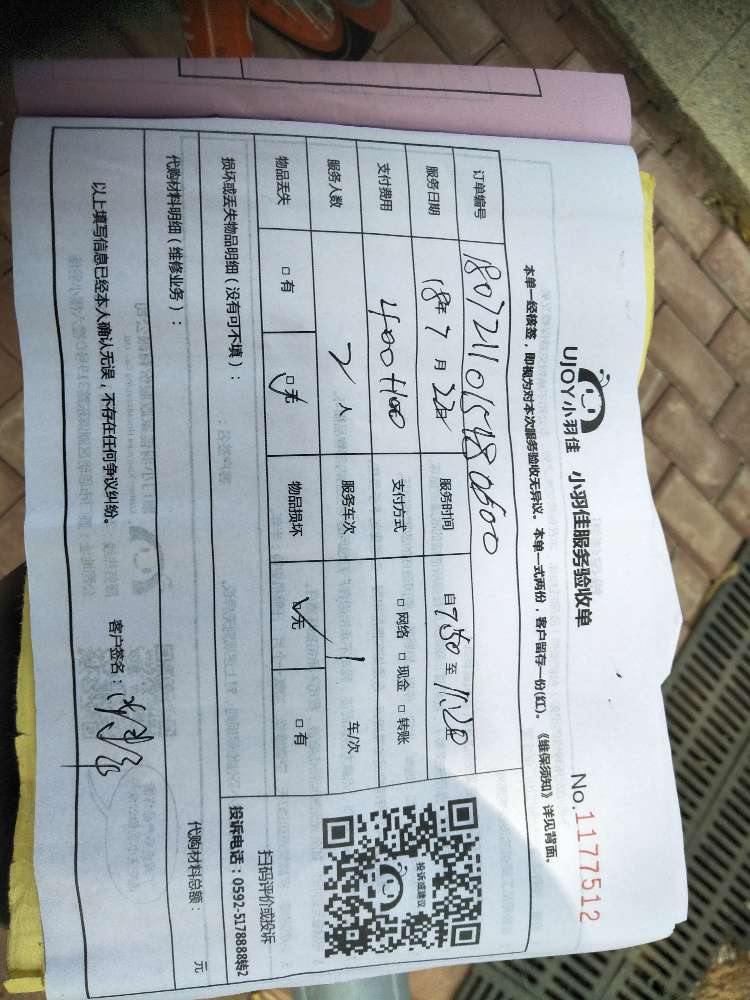 UJOY小羽佳 小羽佳服务验收单
No.1177512
本单一经核签，即视为对本次服务验收无异议。本单一式两份，客户留存一份(红)。《维保须知》详见背面。
订单编号
服务日期 18年7月22日 服务时间 自7:50至11:20
支付费用 400+100 支付方式 □网络 □现金 □转账
服务人数 2人 服务车次 1 车/次
物品丢失 □有 □无 物品损坏 □无 □有
损坏或丢失物品明细（没有可不填）：
投诉或建议
扫码评价或投诉
投诉电话：0592-5178888转2
代购材料明细（维修业务）： 代购材料总额： 元
以上填写信息已经本人确认无误，不存在任何争议纠纷。 客户签名：